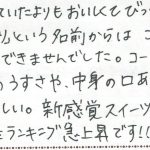 ていたよりもおいしくてびっ
という名前からは
できませんでした。コー
うすさや、中身の口あ
しい。新感覚スイーツ
ランキング急上昇です!!